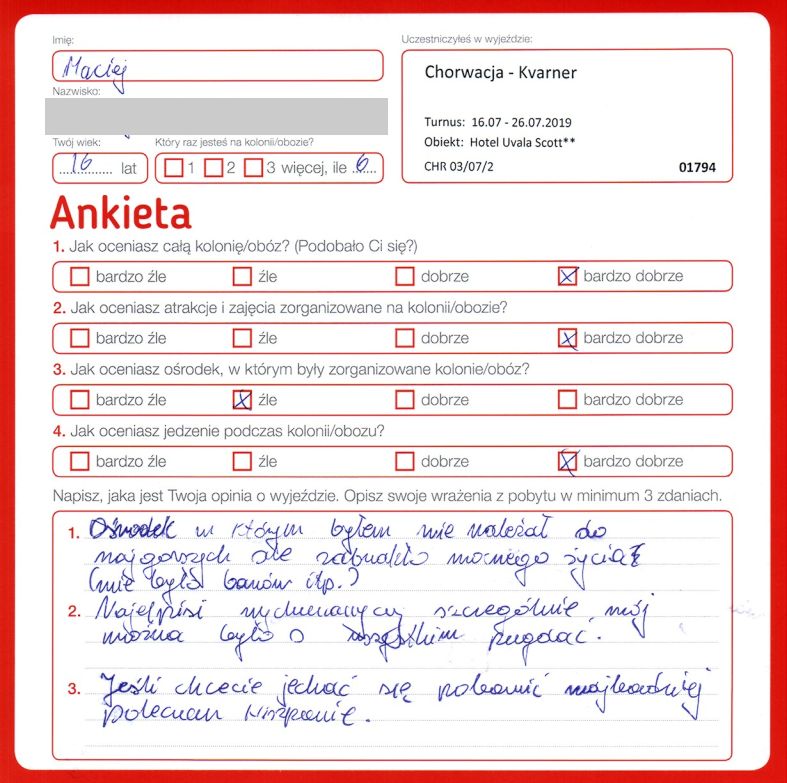 Imię:
Maciej
Nazwisko:
Twój wiek:
16 lat
Który raz jesteś na kolonii/obozie?
1 2 3 więcej, ile 6
Uczestniczyłeś w wyjeździe:
Chorwacja - Kvarner
Turnus: 16.07 - 26.07.2019
Obiekt: Hotel Uvala Scott**
CHR 03/07/2 01794
Ankieta
1. Jak oceniasz całą kolonię/obóz? (Podobało Ci się?)
bardzo źle źle dobrze bardzo dobrze
2. Jak oceniasz atrakcje i zajęcia zorganizowane na kolonii/obozie?
bardzo źle źle dobrze bardzo dobrze
3. Jak oceniasz ośrodek, w którym były zorganizowane kolonie/obóz?
bardzo źle źle dobrze bardzo dobrze
4. Jak oceniasz jedzenie podczas kolonii/obozu?
bardzo źle źle dobrze bardzo dobrze
Napisz, jaka jest Twoja opinia o wyjeździe. Opisz swoje wrażenia z pobytu w minimum 3 zdaniach.
1. Ośrodek w którym byłem nie należał do
najgorszych ale zabrakło nocnego życia
(nie było barów itp.)
2. Najlepsi wychowawcy szczególnie mój
można było o wszystkim pogadać.
3. Jeśli chcecie jechać się pobawić najbardziej
polecam Hiszpanie.